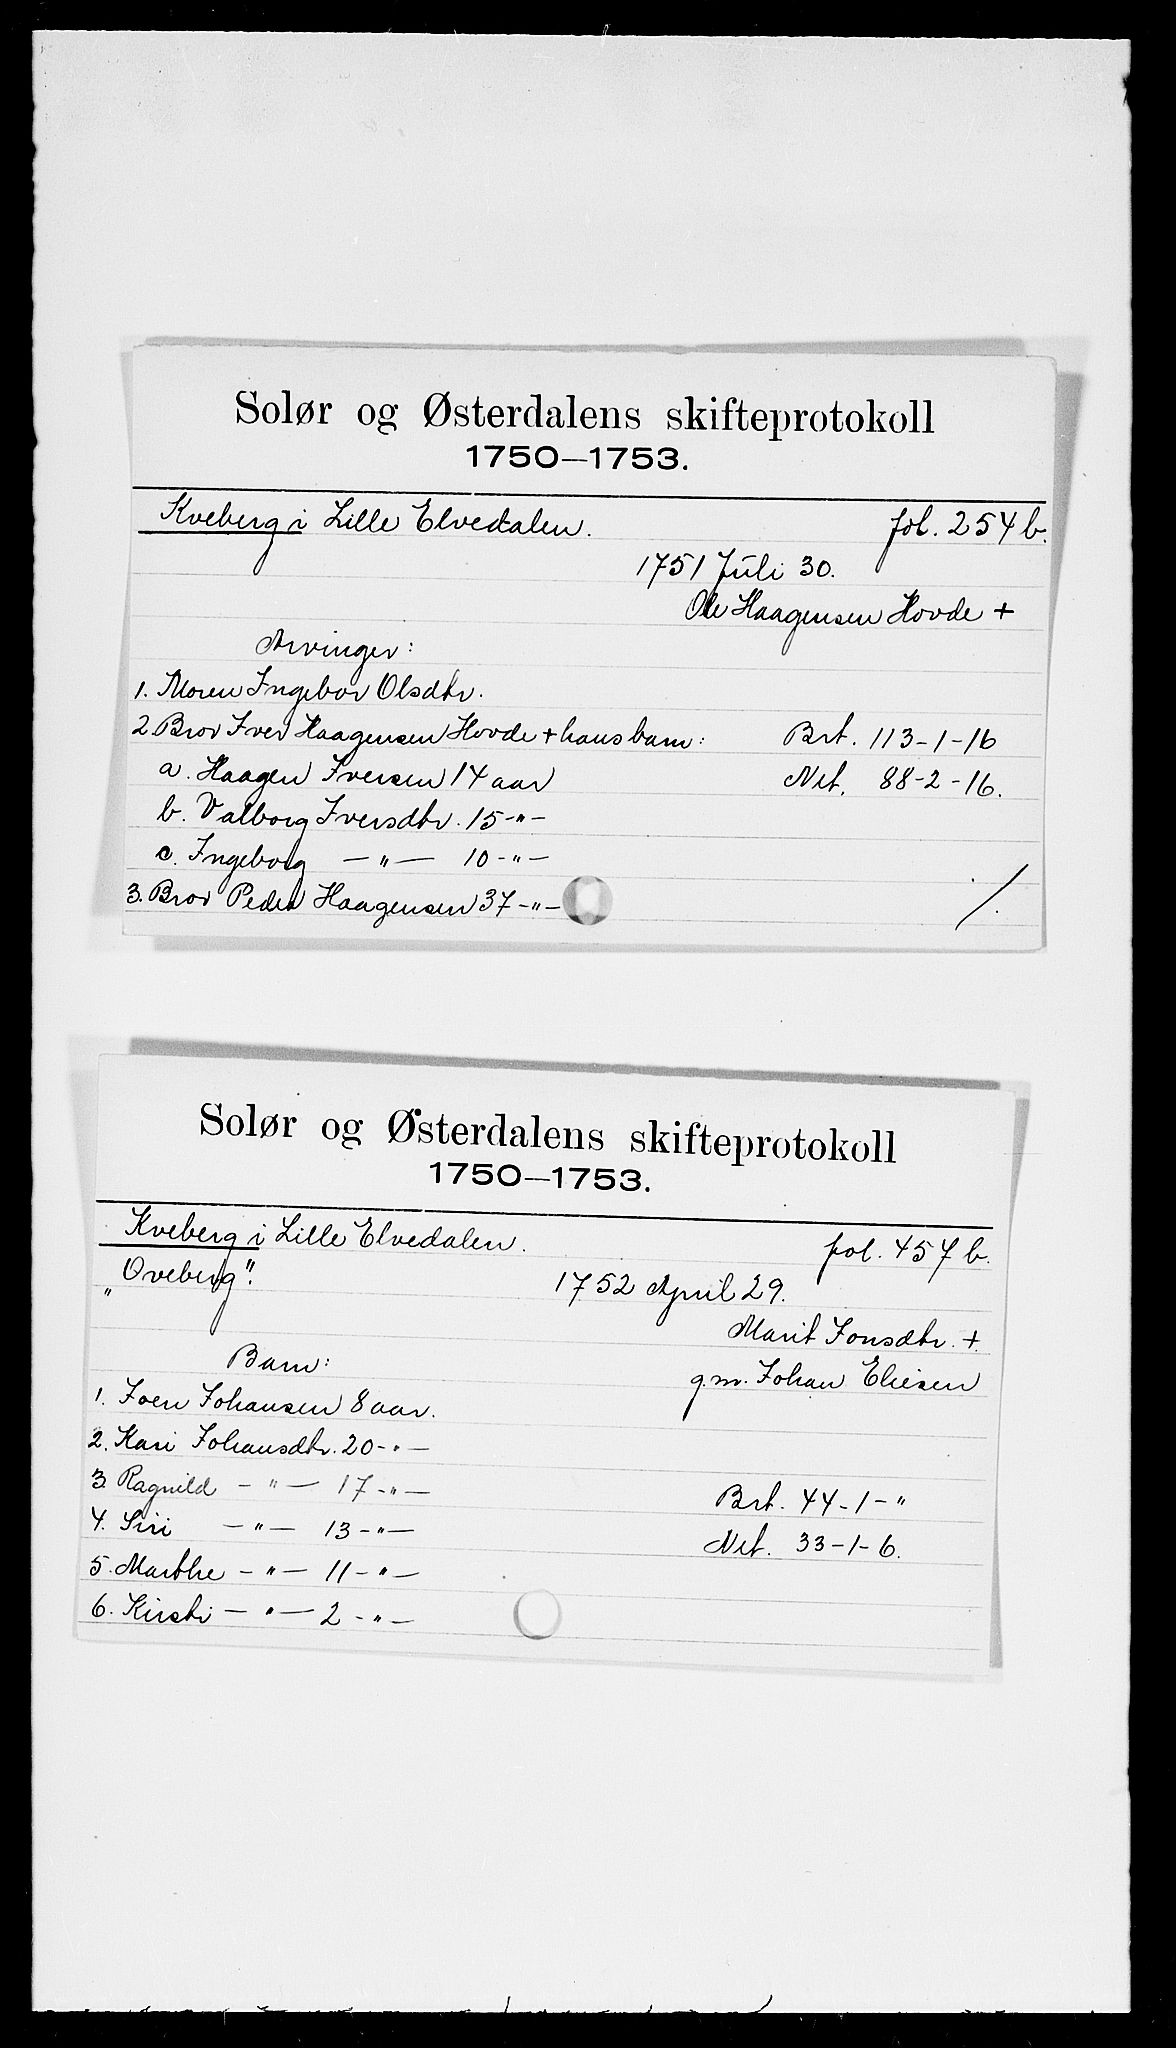 Solør og Østerdalens skifteprotokoll
1750—1753.
Kveberg i Lille Elvedalen. fol. 254 b.
1751 Juli 30.
Ole Haagensen Hovde +
Arvinger:
1. Moren Ingebor Olsdtr.
2. Bror Iver Haagensen Hovde + hans barn: Brt. 113-1-16
a. Haagen Iversen 14 aar Net. 88-2-16.
b. Valborg Iversdtr. 15-"-
c. Ingeborg — " — 10-"-
3. Bror Peder Haagensen 37-"- /.
Solør og Østerdalens skifteprotokoll
1750—1753.
Kveberg i Lille Elvedalen. fol. 457 b.
„Qveberg". 1752 April 29.
Marit Jonsdtr. +.
Barn: g.m. Johan Eliesen
1. Joen Johansen 8 aar.
2. Kari Johansdtr. 20-"-
3. Ragnild - " — 17-"- Brt. 44-1-"
4. Siri — " — 13-"- Net. 33-1-6.
5. Marthe - " — 11-"-
6. Kirsti — " — 2-"-